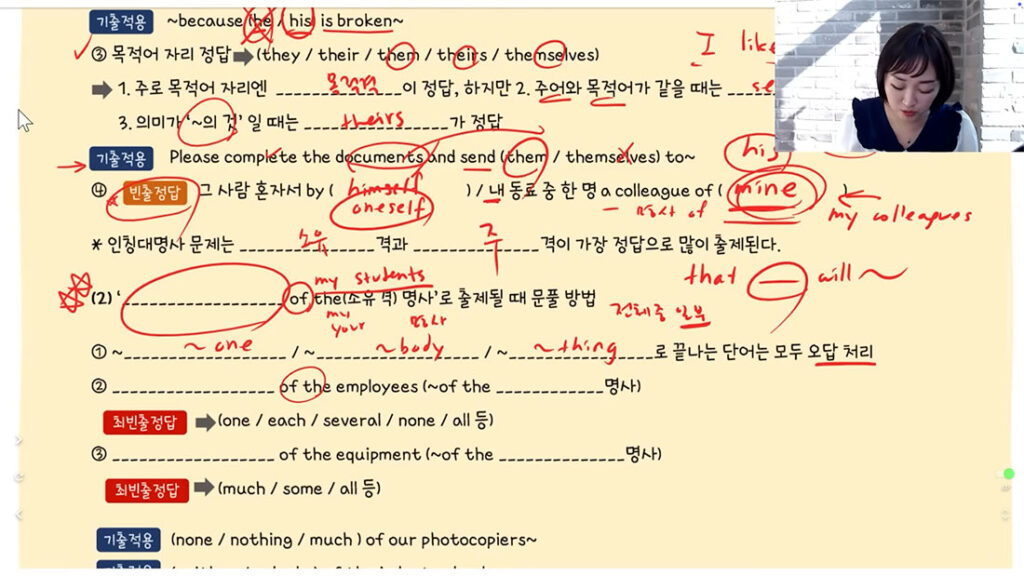 기출적용 ~because (he / his is broken~
I like
③ 목적어 자리 정답 ➡ (they / their / them / theirs / themselves)
➡ 1. 주로 목적어 자리엔 목적격 이 정답, 하지만 2. 주어와 목적어가 같을 때는 se
3. 의미가 '~의 것' 일 때는 theirs 가 정답
기출적용 Please complete the documents and send (them / themselves) to~ his
④ 빈출정답 그 사람 혼자서 by ( himself ) / 내 동료 중 한 명 a colleague of ( mine )
oneself
명사 of my colleagues
* 인칭대명사 문제는 소유 격과 주 격이 가장 정답으로 많이 출제된다.
my students that — will ~
(2) '____ of the(소유격) 명사'로 출제될 때 문풀 방법
my 명사 전체중 일부
your
① ~ ~one / ~ ~body / ~ ~thing 로 끝나는 단어는 모두 오답 처리
② ____ of the employees (~of the ____ 명사)
최빈출정답 ➡ (one / each / several / none / all 등)
③ ____ of the equipment (~of the ____ 명사)
최빈출정답 ➡ (much / some / all 등)
기출적용 (none / nothing / much ) of our photocopiers~